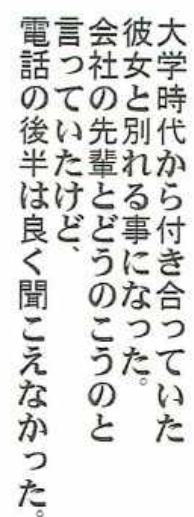 大学時代から付き合っていた
彼女と別れる事になった。
会社の先輩とどうのこうのと
言っていたけど、
電話の後半は良く聞こえなかった。